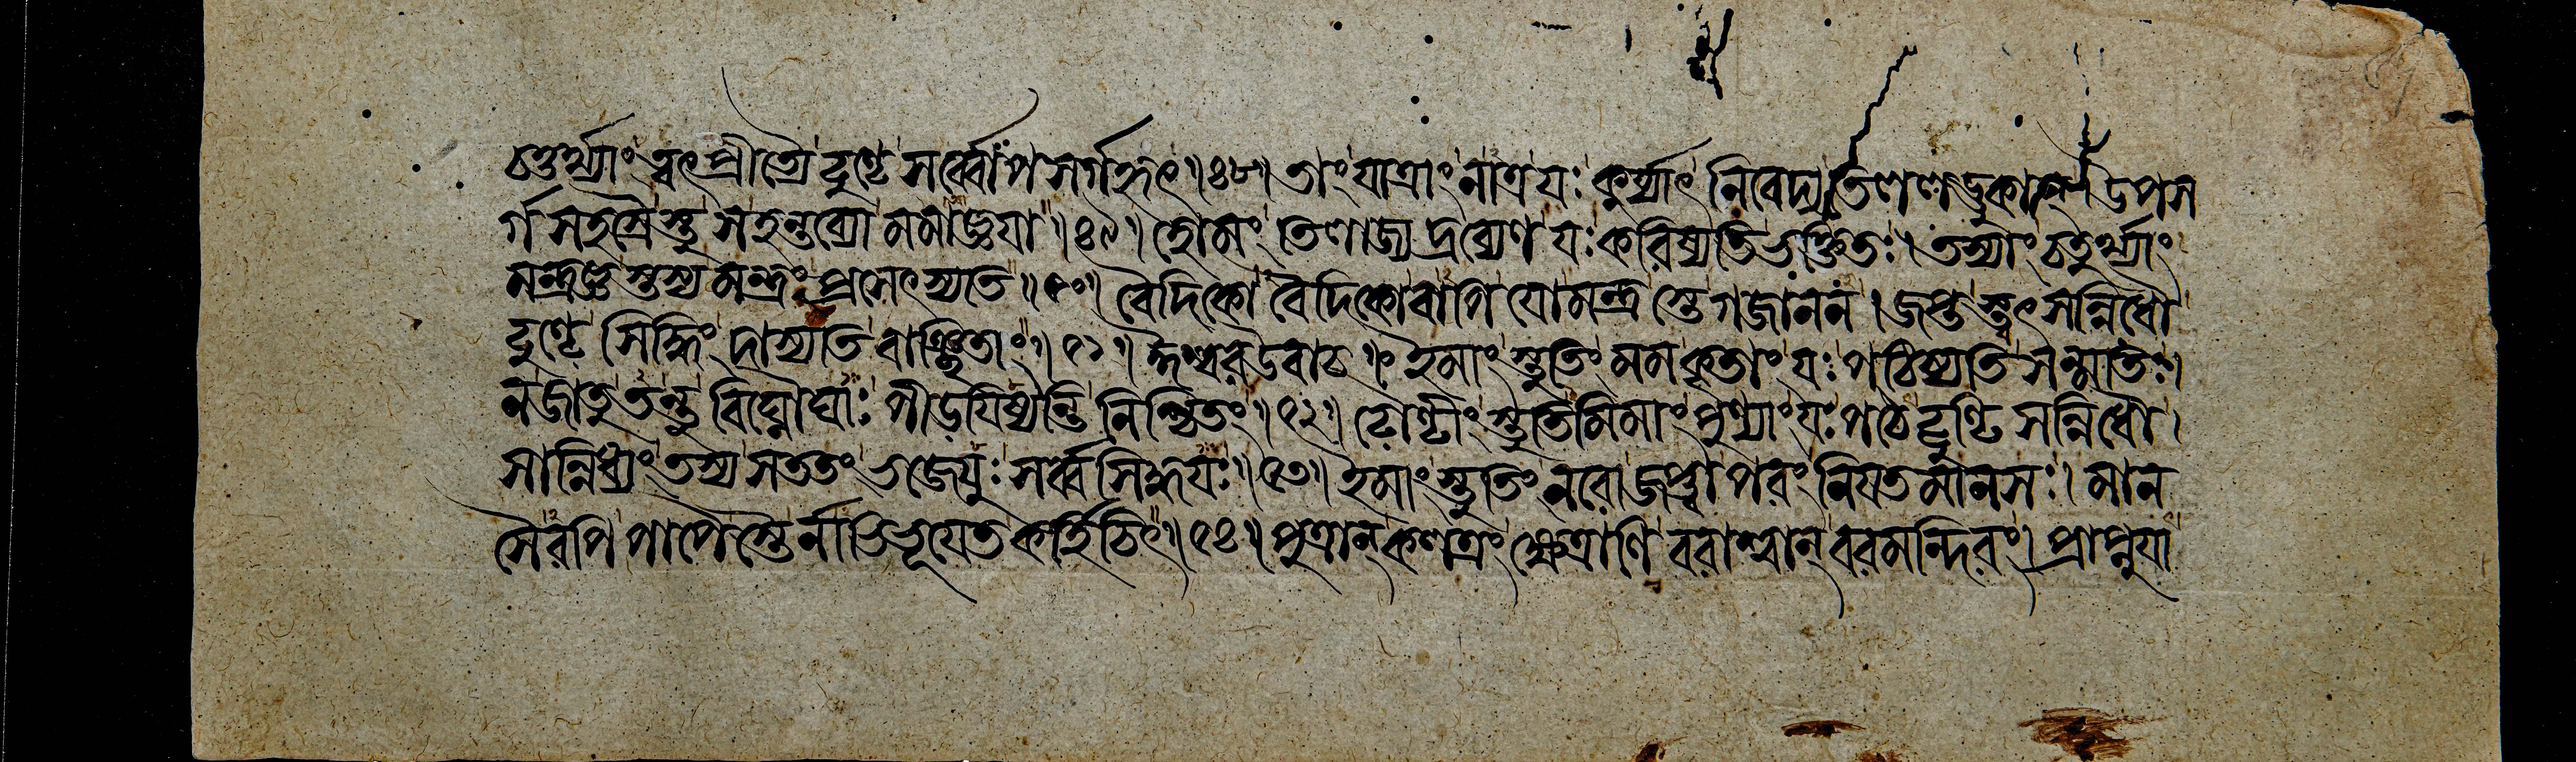 চতুর্থ্যাং ত্বৎপ্রীত্যৈ ঢুণ্ঢে সর্ব্বোপসর্গহৃৎ॥৪৮॥ তাং যাত্রাং নাত্র যঃ কুর্য্যাৎ নিবেদ্য তিললড্ডুকান্। উপস
র্গসহস্রৈস্তু স হন্তব্যো মমাজ্ঞয়া॥৪৯॥ হোমং তিলাজ্যদ্রব্যেণ যঃ করিষ্যতি ভক্তিতঃ। তস্যাং চতুর্থ্যাং
মন্ত্রজ্ঞস্তস্য মন্ত্রঃ প্রসেৎস্যতি॥৫০॥ বৈদিকোঽবৈদিকো বাপি যো মন্ত্রস্তে গজানন। জপ্তস্ত্বৎসন্নিধৌ
ঢুণ্ঢে সিদ্ধিং দাস্যতি বাঞ্ছিতাং॥৫১॥ ঈশ্বর উবাচ॥ ইমাং স্তুতিং মম কৃতাং যঃ পঠিষ্যতি সন্মতিঃ।
ন জাতু তন্তু বিঘ্নৌঘাঃ পীডয়িষ্যন্তি নিশ্চিতং॥৫২॥ ঢৌণ্ঢীং স্তুতিমিমাং পুণ্যাং যঃ পঠেদ্ঢুণ্ঢিসন্নিধৌ।
সান্নিধ্যং তস্য সততং ভজেয়ুঃ সর্ব্বসিদ্ধয়ঃ॥৫৩॥ ইমাং স্তুতিং নরো জপ্ত্বা পরং নিয়তমানসঃ। মান
সৈরপি পাপৈস্তৈর্নাভিভূয়েত কর্হিচিৎ॥৫৪॥ পুত্রান্ কলত্রং ক্ষেত্রাণি বরাশ্বান্ বরমন্দিরং। প্রাপ্নুয়া